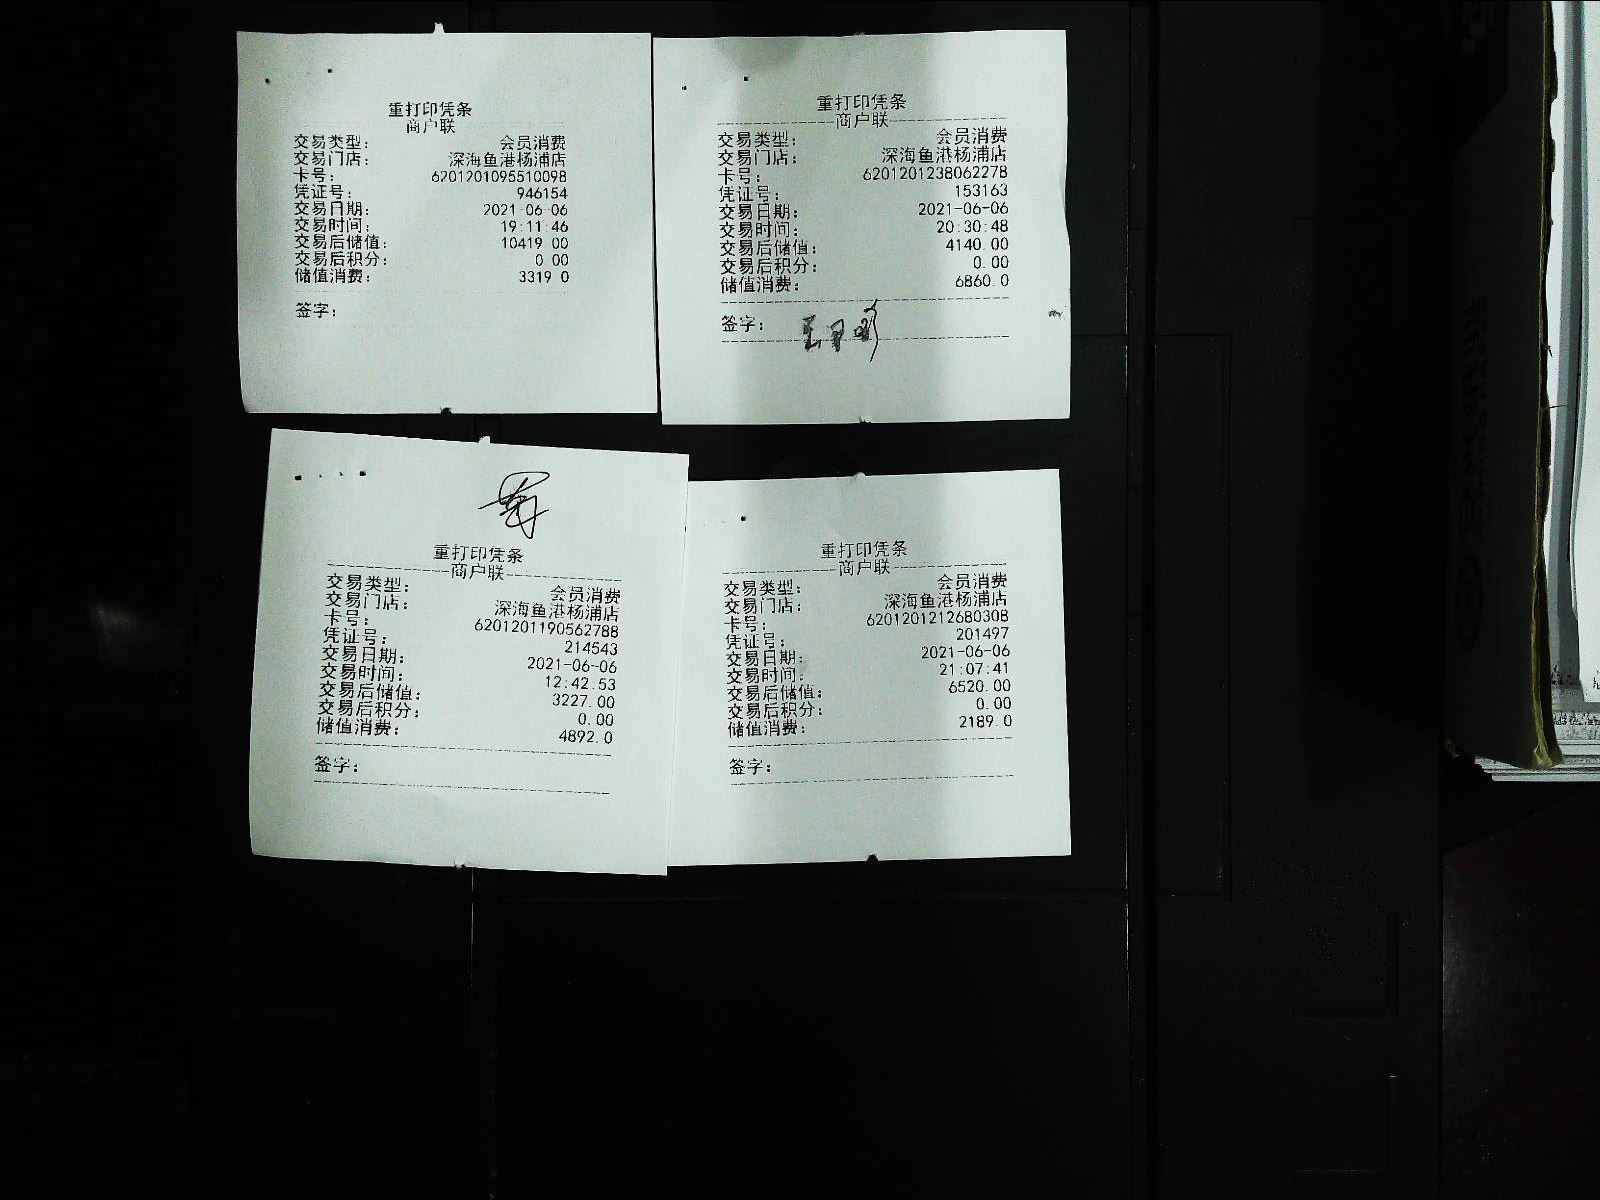 重打印凭条
商户联
交易类型: 会员消费
交易门店: 深海鱼港杨浦店
卡号: 6201201095510098
凭证号: 946154
交易日期: 2021-06-06
交易时间: 19:11:46
交易后储值: 10419 00
交易后积分: 0 00
储值消费: 3319 0
签字:
重打印凭条
商户联
交易类型: 会员消费
交易门店: 深海鱼港杨浦店
卡号: 6201201238062278
凭证号: 153163
交易日期: 2021-06-06
交易时间: 20:30:48
交易后储值: 4140.00
交易后积分: 0.00
储值消费: 6860.0
签字:
重打印凭条
商户联
交易类型: 会员消费
交易门店: 深海鱼港杨浦店
卡号: 6201201190562788
凭证号: 214543
交易日期: 2021-06-06
交易时间: 12:42.53
交易后储值: 3227.00
交易后积分: 0.00
储值消费: 4892.0
签字:
重打印凭条
商户联
交易类型: 会员消费
交易门店: 深海鱼港杨浦店
卡号: 6201201212680308
凭证号: 201497
交易日期: 2021-06-06
交易时间: 21:07:41
交易后储值: 6520.00
交易后积分: 0.00
储值消费: 2189.0
签字: